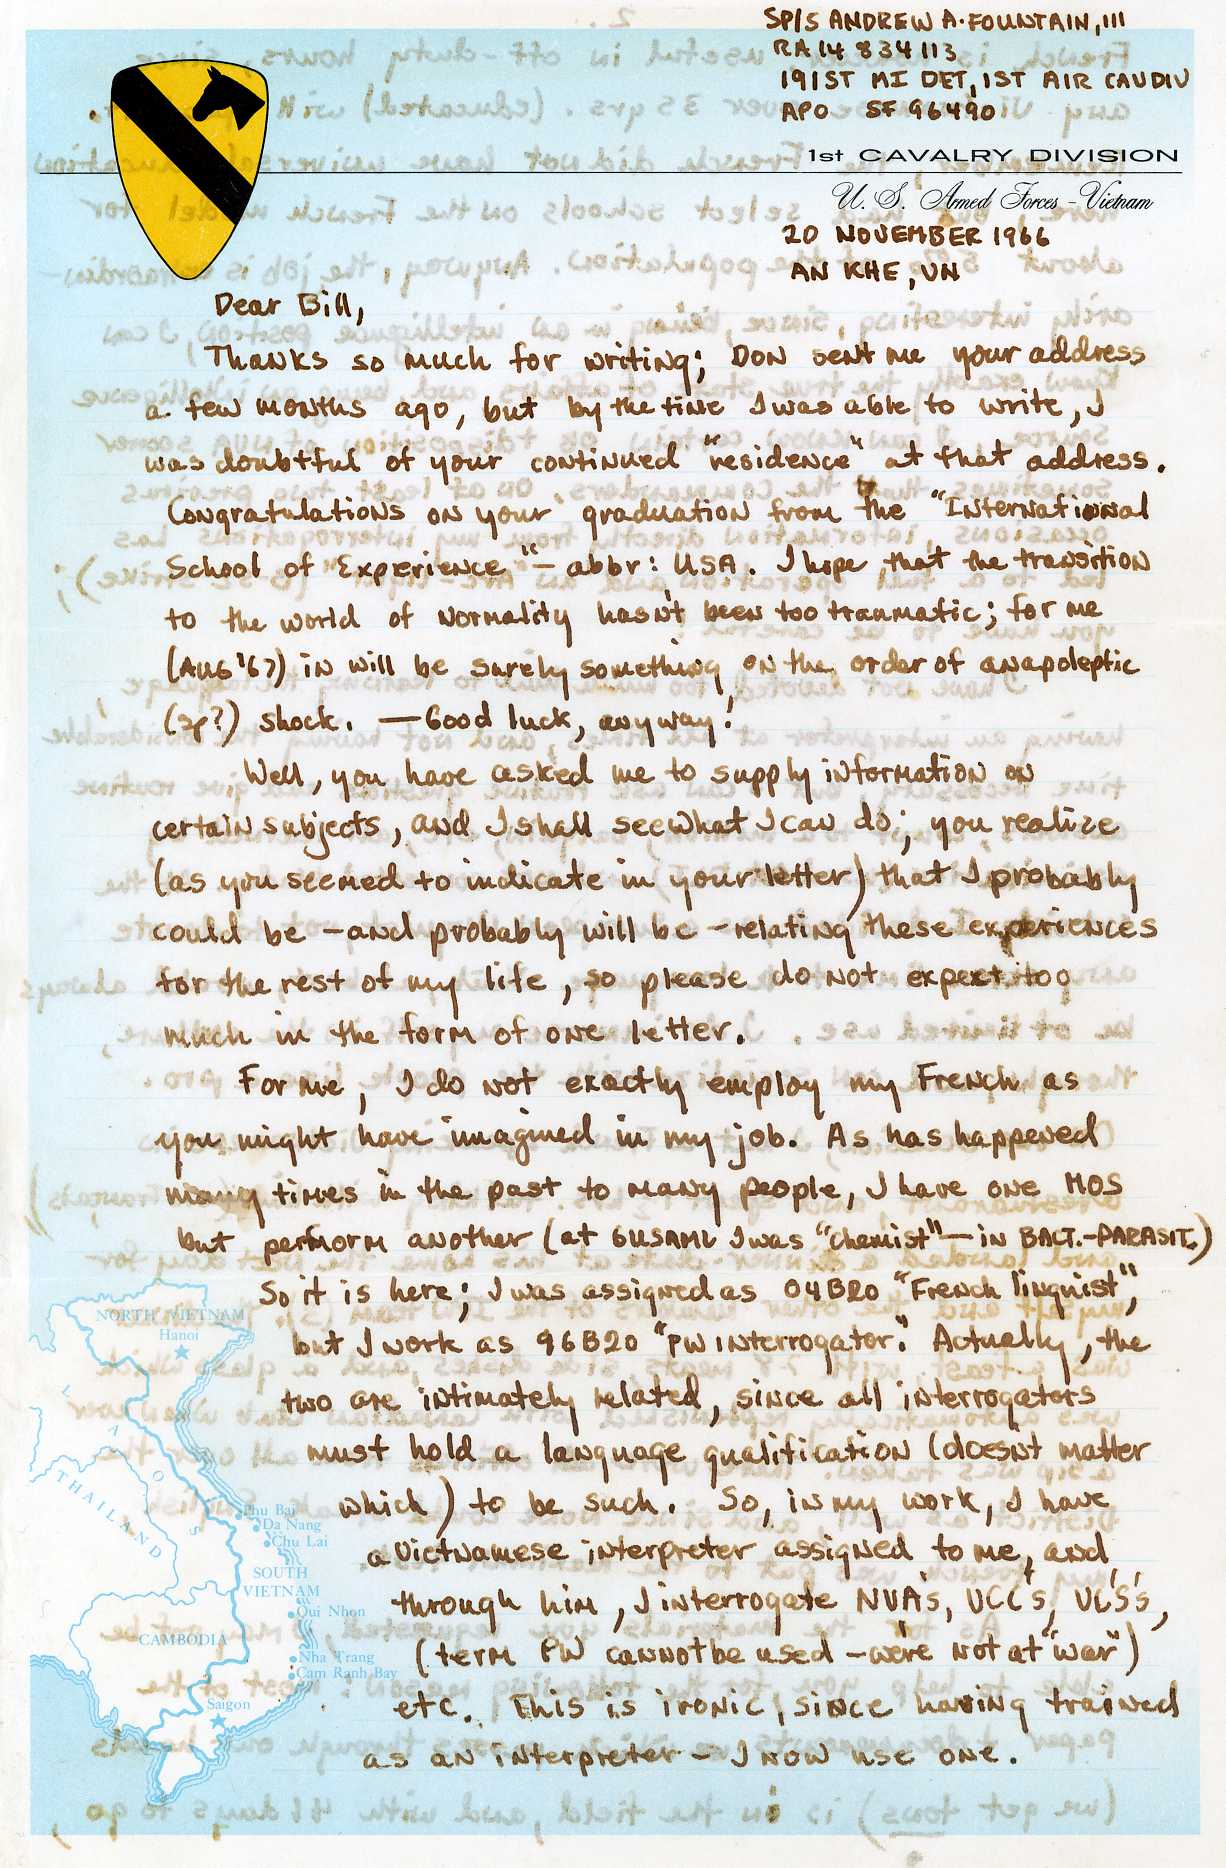 SP/5 ANDREW A. FOUNTAIN, III
RA 14 834 113
191ST MI DET, 1ST AIR CAV DIV
APO SF 96490
1st CAVALRY DIVISION
U. S. Armed Forces - Vietnam
20 NOVEMBER 1966
AN KHE, VN
Dear Bill,
Thanks so much for writing; Don sent me your address
a few months ago, but by the time I was able to write, I
was doubtful of your continued "residence" at that address.
Congratulations on your graduation from the "International
School of Experience" - abbr: USA. I hope that the transition
to the world of normality hasn't been too traumatic; for me
(Aug '67) in will be surely something on the order of anapoleptic
(sp?) shock. — Good luck, anyway!
Well, you have asked me to supply information on
certain subjects, and I shall see what I can do; you realize
(as you seemed to indicate in your letter) that I probably
could be - and probably will be - relating these experiences
for the rest of my life, so please do not expect too
much in the form of one letter.
For me, I do not exactly employ my French as
you might have imagined in my job. As has happened
many times in the past to many people, I have one MOS
but perform another (at 6USAML I was "chemist" — in BACT.-PARASIT.)
So it is here; I was assigned as 04B20 "French linguist",
but I work as 96B20 "PW interrogator". Actually, the
two are intimately related, since all interrogators
must hold a language qualification (doesn't matter
which) to be such. So, in my work, I have
a Vietnamese interpreter assigned to me, and,
through him, I interrogate NVA's, VCC's, VCS's,
(term PW cannot be used - we're not at "war")
etc. This is ironic, since having trained
as an interpreter - I now use one.
NORTH VIETNAM
Hanoi
LAOS
THAILAND
Phu Bai
Da Nang
Chu Lai
SOUTH
VIETNAM
Qui Nhon
CAMBODIA
Nha Trang
Cam Ranh Bay
Saigon